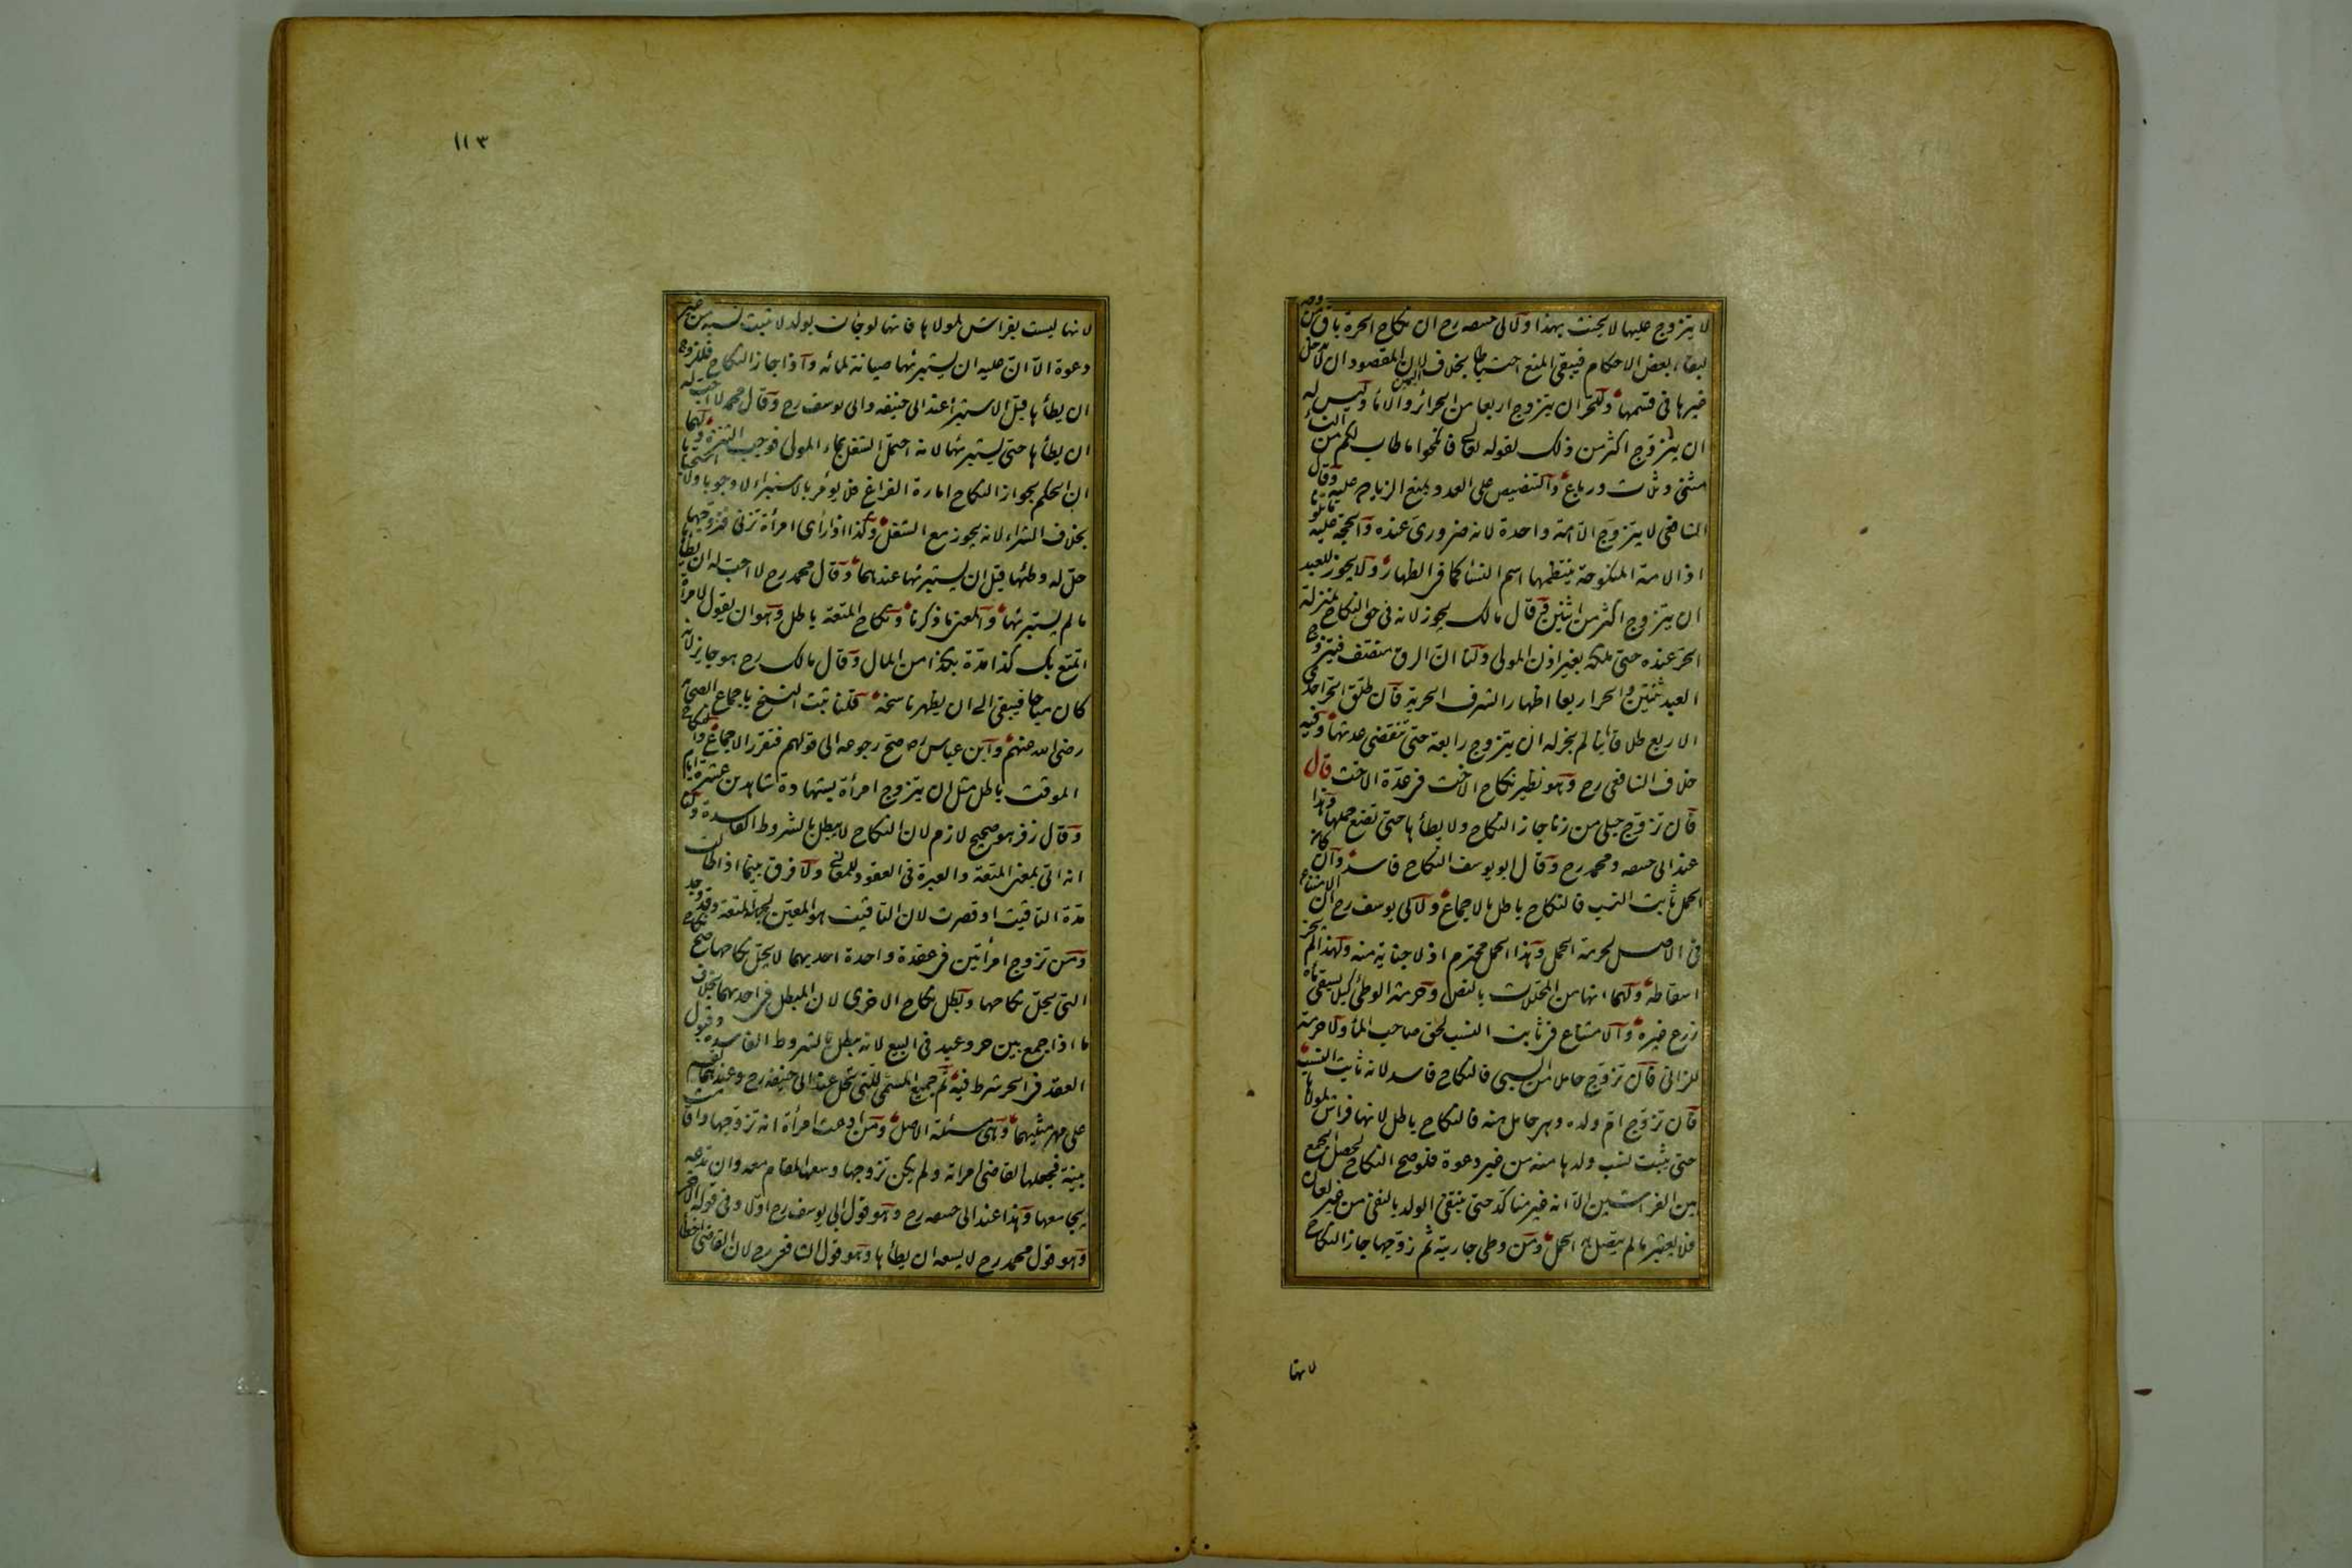 لا يتزوج عليها لا يحنث بهذا ولابى حنيفه رح ان نكاح الحرة باق من وجه
لبقاء بعض الاحكام فيبقى المنع احتياطا بخلاف اليمين لان المقصود ان لا يدخل
غيرها فى قسمها وللحر ان يتزوج اربعا من الحرائر والاماء وليس له
ان يتزوج اكثر من ذلك لقوله تعالى فانكحوا ما طاب لكم من النساء
مثنى وثلاث ورباع والتنصيص على العدد يمنع الزيادة عليه وقال
الشافعى لا يتزوج الا امة واحدة لانه ضرورى عنده والحجة عليه ما تلونا
اذ الامة المنكوحة ينتظمها اسم النساء كما فى الظهار ولا يجوز للعبد
ان يتزوج اكثر من اثنتين وقال مالك يجوز لانه فى حق النكاح بمنزلة
الحر عنده حتى ملكه بغير اذن المولى ولنا ان الرق منصف فيتزوج
العبد ثنتين والحر اربعا اظهارا لشرف الحرية فان طلق الحر احدى
الاربع طلاقا بائنا لم يجز له ان يتزوج رابعة حتى تنقضى عدتها وفيه
خلاف الشافعى رح وهو نظير نكاح الاخت فى عدة الاخت قال
فان تزوج حبلى من زنا جاز النكاح ولا يطأها حتى تضع حملها وهذا
عند ابى حنيفه ومحمد رح وقال ابو يوسف النكاح فاسد وان كان
الحمل ثابت النسب فالنكاح باطل بالاجماع ولابى يوسف رح ان الامتناع
فى الاصل لحرمة الحمل وهذا الحمل محترم اذ لا جناية منه ولهذا لم يجز
اسقاطه ولهما انها من المحللات بالنص وحرمة الوطئ كيلا يسقى ماءه
زرع غيره والامتناع فى ثابت النسب لحق صاحب الماء ولا حرمة
للزانى فان تزوج حاملا من السبى فالنكاح فاسد لانه ثابت النسب
فان تزوج ام ولده وهى حامل منه فالنكاح باطل لانها فراش لمولاها
حتى يثبت نسب ولدها منه من غير دعوة فلو صح النكاح لحصل الجمع
بين الفراشين الا انه غير متاكد حتى ينتفى الولد بالنفى من غير لعان
فلا يعتبر ما لم يتصل به الحمل ومن وطى جاريته ثم زوجها جاز النكاح
لانها
١١٣
لانها ليست بفراش لمولاها فانها لو جات بولد لا يثبت نسبه من غير
دعوة الا ان عليه ان يستبرئها صيانة لمائه واذا جاز النكاح فللزوج
ان يطأها قبل الاستبراء عند ابى حنيفه وابى يوسف رح وقال محمد لا احب له
ان يطأها حتى يستبرئها لانه احتمل الشغل بماء المولى فوجب التنزه ولهما
ان الحكم بجواز النكاح امارة الفراغ فلا يؤمر بالاستبراء لا وجوبا ولا استحبابا
بخلاف الشراء لانه يجوز مع الشغل وكذا اذا رأى امرأة تزنى فتزوجها
حل له وطئها قبل ان يستبرئها عندهما وقال محمد رح لا احب له ان يطأها
ما لم يستبرئها والمعنى ما ذكرنا ونكاح المتعة باطل وهو ان يقول لامرأة
اتمتع بك كذا مدة بكذا من المال وقال مالك رح هو جايز لانه
كان مباحا فيبقى الى ان يظهر ناسخه قلنا ثبت النسخ باجماع الصحابة
رضى الله عنهم وابن عباس رض صح رجوعه الى قولهم فتقرر الاجماع والنكاح
الموقت باطل مثل ان يتزوج امرأة بشهادة شاهدين عشرة ايام
وقال زفر هو صحيح لازم لان النكاح لا يبطل بالشروط الفاسدة ولنا
انه اتى بمعنى المتعة والعبرة فى العقود للمعانى ولا فرق بينما اذا طالت
مدة التاقيت او قصرت لان التاقيت هو المعين لجهة المتعة وقد وجد
ومن تزوج امرأتين فى عقدة واحدة احديهما لا يحل نكاحها صح نكاح
التى يحل نكاحها وبطل نكاح الاخرى لان المبطل فى احديهما بخلاف
ما اذا جمع بين حر وعبد فى البيع لانه يبطل بالشروط الفاسدة وقبول
العقد فى الحر شرط فيه ثم جميع المسمى للتى تحل عند ابى حنيفه رح وعندهما يقسم
على مهر مثليهما وهى مسئلة الاصل ومن ادعت امرأة انه تزوجها واقامت
بينة فجعلها القاضى امراته ولم يكن تزوجها وسعها المقام معه وان تدعه
يجامعها وهذا عند ابى حنيفه رح وهو قول ابى يوسف رح اولا وفى قوله الاخر
وهو قول محمد رح لا يسعه ان يطأها وهو قول الشافعى رح لان القاضى اخطأ